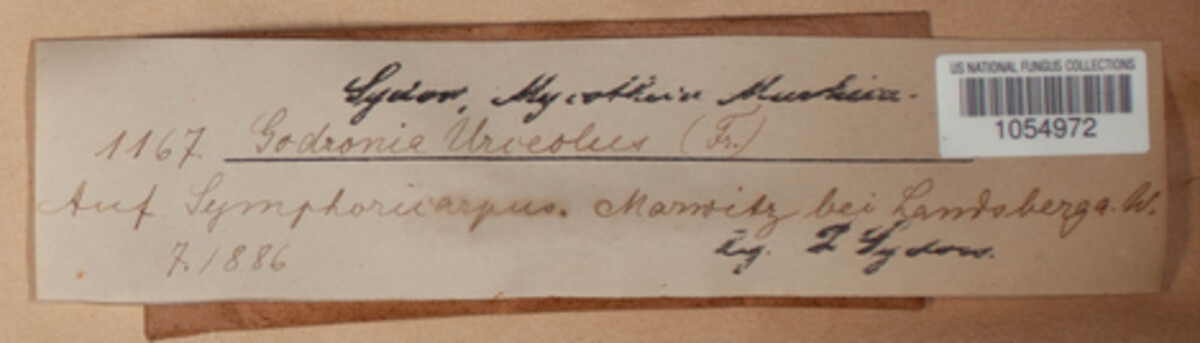 Sydow, Mycotheca Marchica.
US NATIONAL FUNGUS COLLECTIONS
1054972
1167. Godronia Urceolus (Fr.)
Auf Symphoricarpus. Marwitz bei Landsberg a. W.
7.1886
leg. P Sydow.